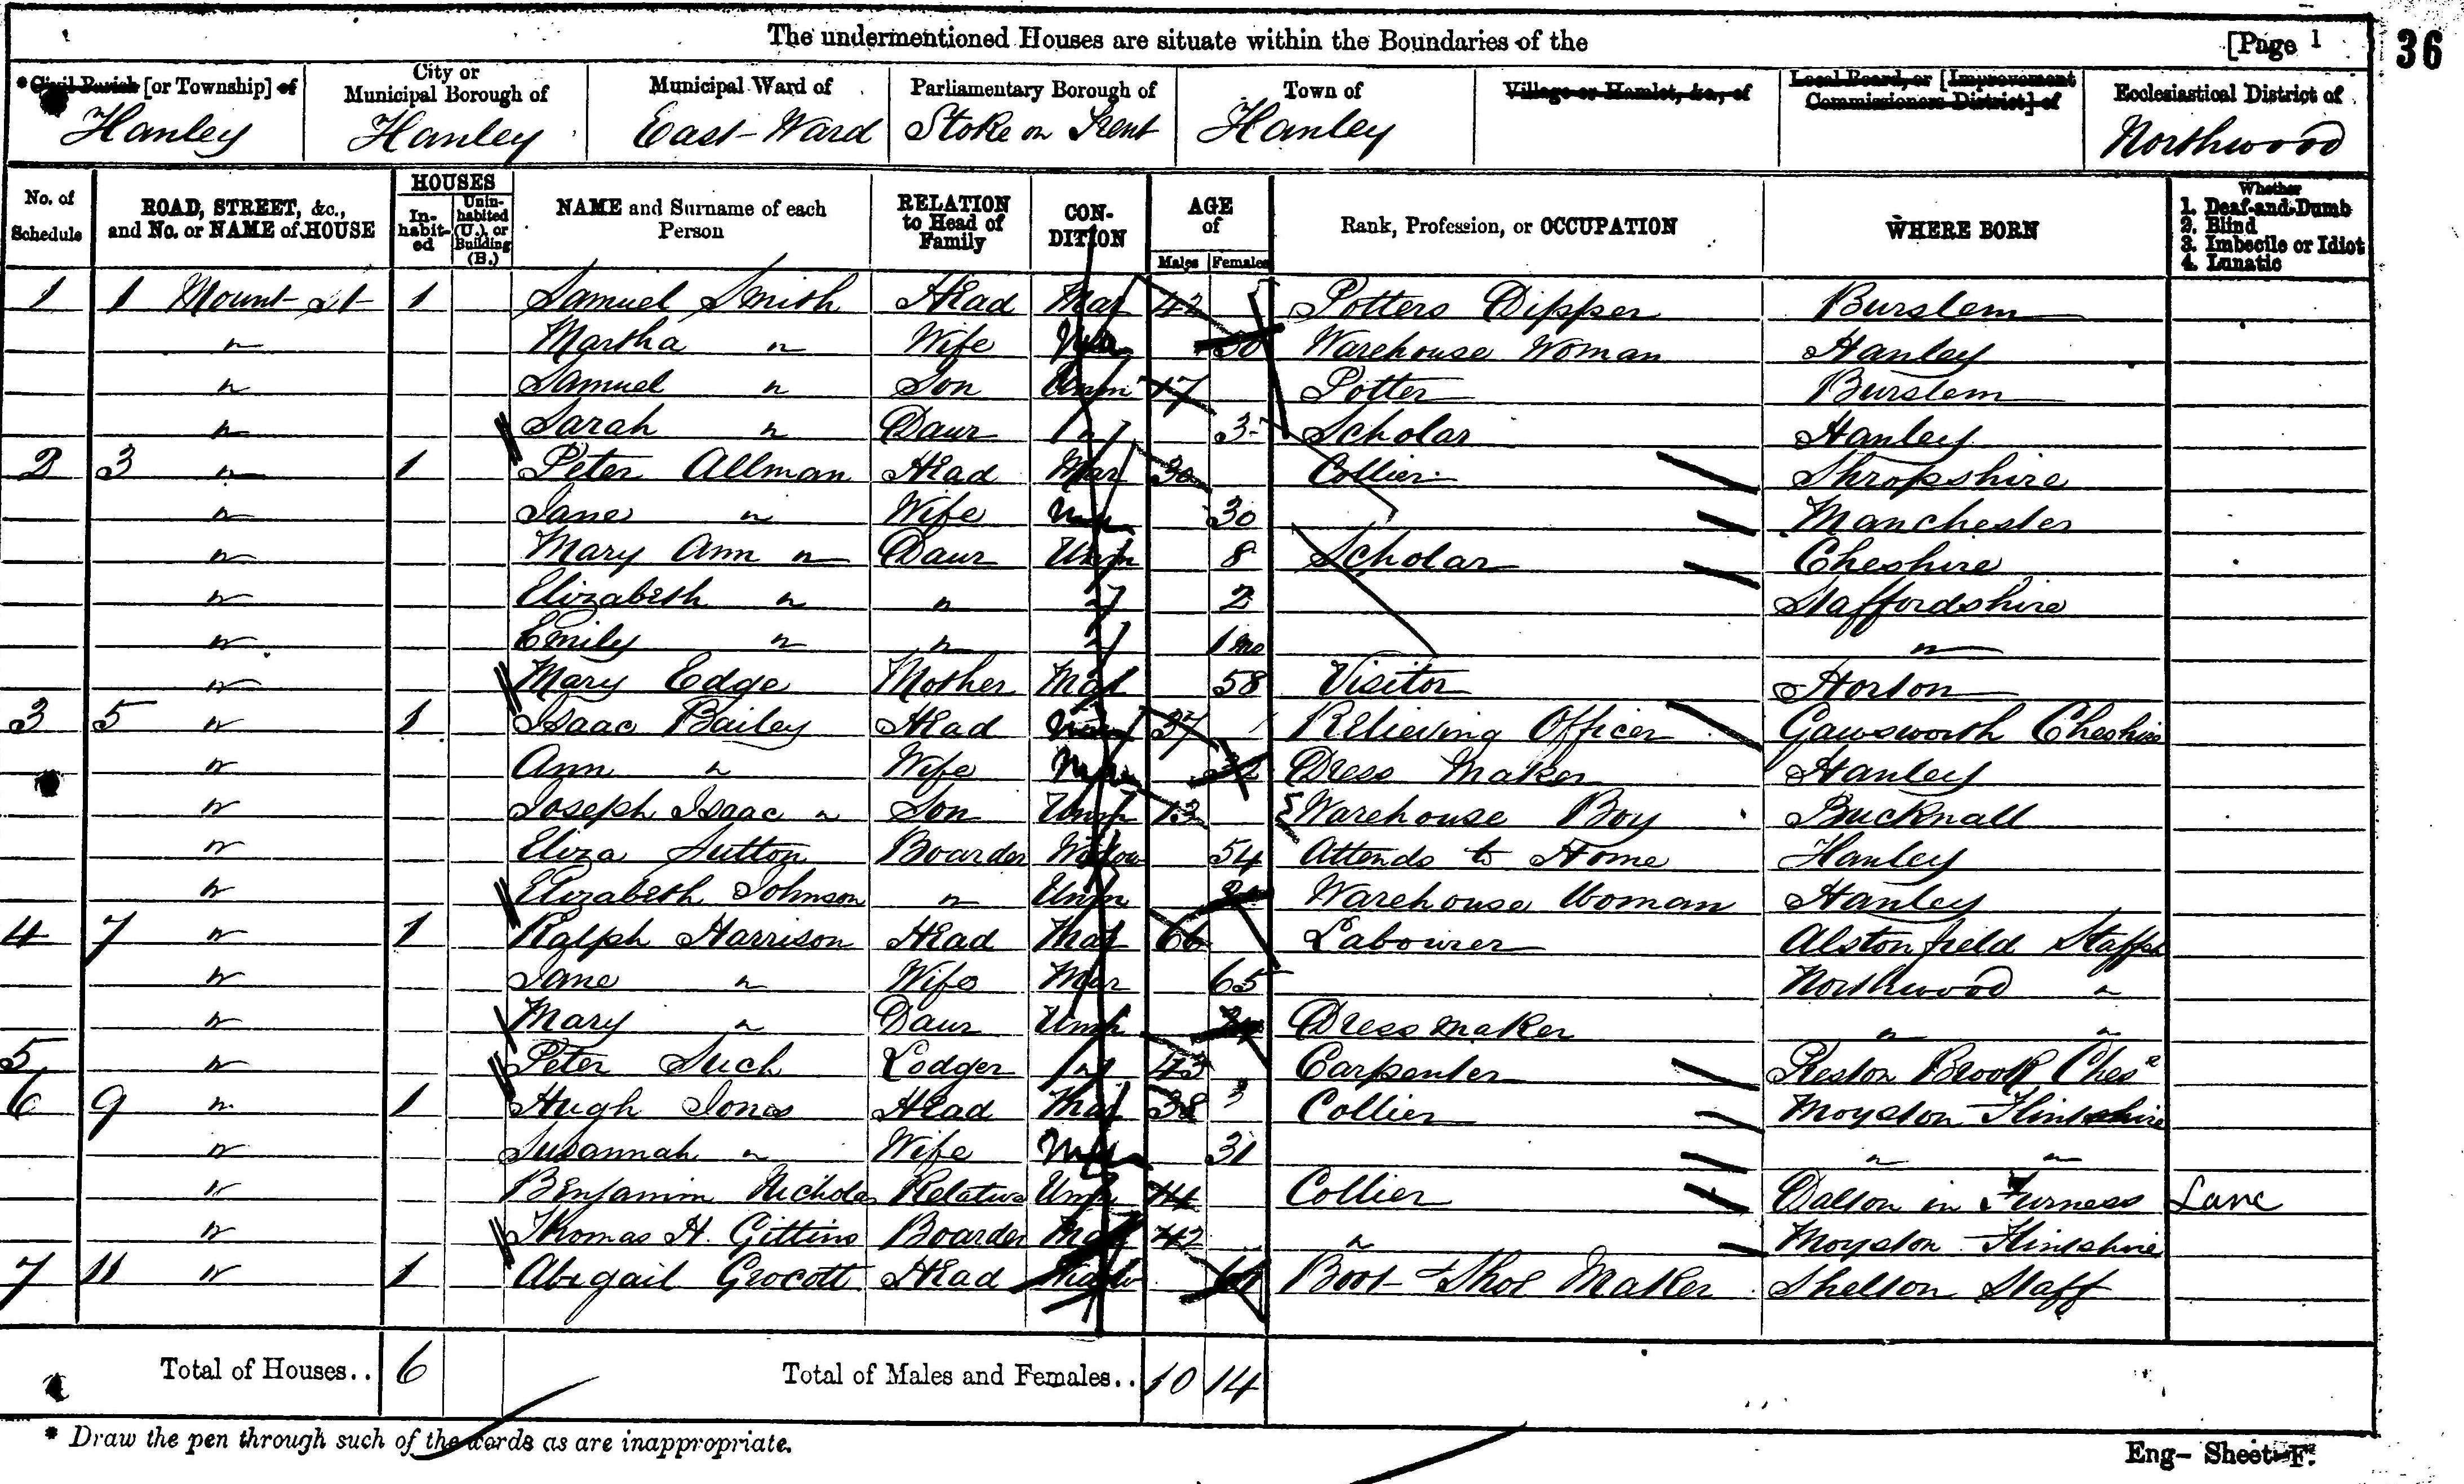 The undermentioned Houses are situate within the Boundaries of the [Page 1
36
* Civil Parish [or Township] of City or Municipal Borough of Municipal Ward of Parliamentary Borough of Town of Village or Hamlet, &c., of Local Board, or [Improvement Commissioners District] of Ecclesiastical District of
Hanley Hanley East-Ward Stoke on Trent Hanley Northwood
No. of Schedule ROAD, STREET, &c., and No. or NAME of HOUSE HOUSES Inhabited Uninhabited (U.), or Building (B.) NAME and Surname of each Person RELATION to Head of Family CONDITION AGE of Males Females Rank, Profession, or OCCUPATION WHERE BORN Whether 1. Deaf-and-Dumb 2. Blind 3. Imbecile or Idiot 4. Lunatic
1 1 Mount St 1 Samuel Smith Head Mar 42 Potters Dipper Burslem
" Martha " Wife Warehouse Woman Hanley
" Samuel " Son Unm 17 Potter Burslem
" Sarah " Daur " 3 Scholar Hanley
2 3 " 1 Peter Allman Head Mar 30 Collier Shropshire
" Jane " Wife 30 Manchester
" Mary Ann " Daur Unm 8 Scholar Cheshire
" Elizabeth " " " 2 Staffordshire
" Emily " " " 1 mo "
" Mary Edge Mother Mar 58 Visitor Horton
3 5 " 1 Isaac Bailey Head 37 Relieving Officer Gawsworth Cheshire
" Ann " Wife 32 Dress Maker Hanley
" Joseph Isaac " Son Unm 13 Warehouse Boy Bucknall
" Eliza Sutton Boarder Widow 54 Attends to Home Hanley
" Elizabeth Johnson " Unm Warehouse Woman Hanley
4 7 " 1 Ralph Harrison Head Mar 66 Labourer Alstonfield Staffsh
" Jane " Wife Mar 65 Northwood "
" Mary " Daur Unm Dressmaker " "
5 " Peter Such Lodger " 43 Carpenter Preston Brook Ches
6 9 " 1 Hugh Jones Head Mar 38 Collier Moyston Flintshire
" Susannah " Wife 31 " "
" Benjamin Nicholas Relative Unm 44 Collier Dalton in Furness Lanc
" Thomas H. Gittins Boarder 42 " Moyston Flintshire
7 11 " 1 Abigail Grocott Head Boot & Shoe Maker Shelton Staff
Total of Houses.. 6 Total of Males and Females.. 10 14
* Draw the pen through such of the words as are inappropriate.
Eng- Sheet F.